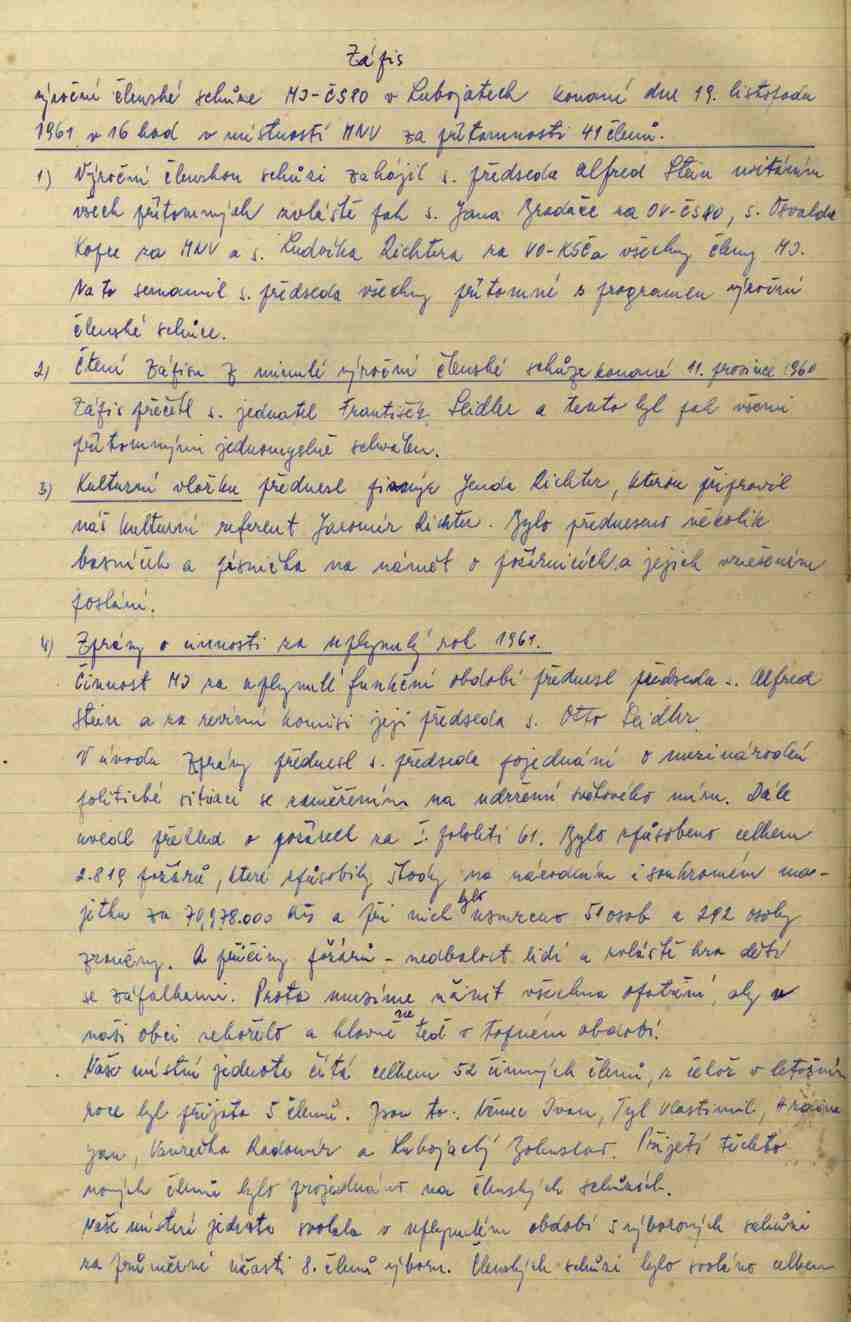 Zápis
výroční členské schůze MJ-ČSPO v Lubojatech konané dne 19. listopadu
1961 v 16 hod v místnosti MNV za přítomnosti 41 členů.
1) Výroční členskou schůzi zahájil s. předseda Alfréd Stein uvítáním
všech přítomných zvláště pak s. Jana Bradáče za OV-ČSPO, s. Osvalda
Kopce za MNV a s. Ludvíka Richtera za VO-KSČ a všechny členy MJ.
Na to seznamil s. předseda všechny přítomné s programem výroční
členské schůze.
2) Čtení zápisu z minulé výroční členské schůze konané 11. prosince 1960
Zápis přečetl s. jednatel František Seidler a tento byl pak všemi
přítomnými jednomyslně schválen.
3) Kulturní vložku přednesl Jenda Richter, kterou připravil
náš kulturní referent Jaromír Richter. Bylo předneseno několik
básniček a písnička na námět o požárnících a jejich vznešeném
poslání.
4) Zprávy o činnosti za uplynulý rok 1961.
Činnost MJ za uplynulé funkční období přednesl předseda s. Alfred
Stein a za revizní komisi její předseda s. Otto Seidler.
V úvodu zprávy přednesl s. předseda pojednání o mezinárodní
politické situaci se zaměřením na udržení světového míru. Dále
uvedl přehled o požárech za I. pololetí 61. Bylo způsobeno celkem
2.819 požárů, které způsobily škody na národním i soukromém ma-
jetku za 70,978.000 Kčs a při nich bylo usmrceno 51 osob a 292 osoby
zraněny. A příčiny požárů - nedbalost lidí a zvláště hra dětí
se zápalkami. Proto musíme učinit všechna opatření, aby v
naší obci nehořelo a hlavně ne teď v topném období.
Naše místní jednota čítá celkem 52 činných členů, z čehož v letošním
roce byl přijato 5 členů. Jsou to: Němec Ivan, Tyl Vlastimil,
Jan, Vavrečka Radomír a Lubojacký Bohuslav. Přijetí těchto
nových členů bylo projednáno na členských schůzích.
Naše místní jednota svolala v uplynulém období 5 výborových schůzí
za průměrné účasti 8. členů výboru. Členských schůzí bylo svoláno celkem